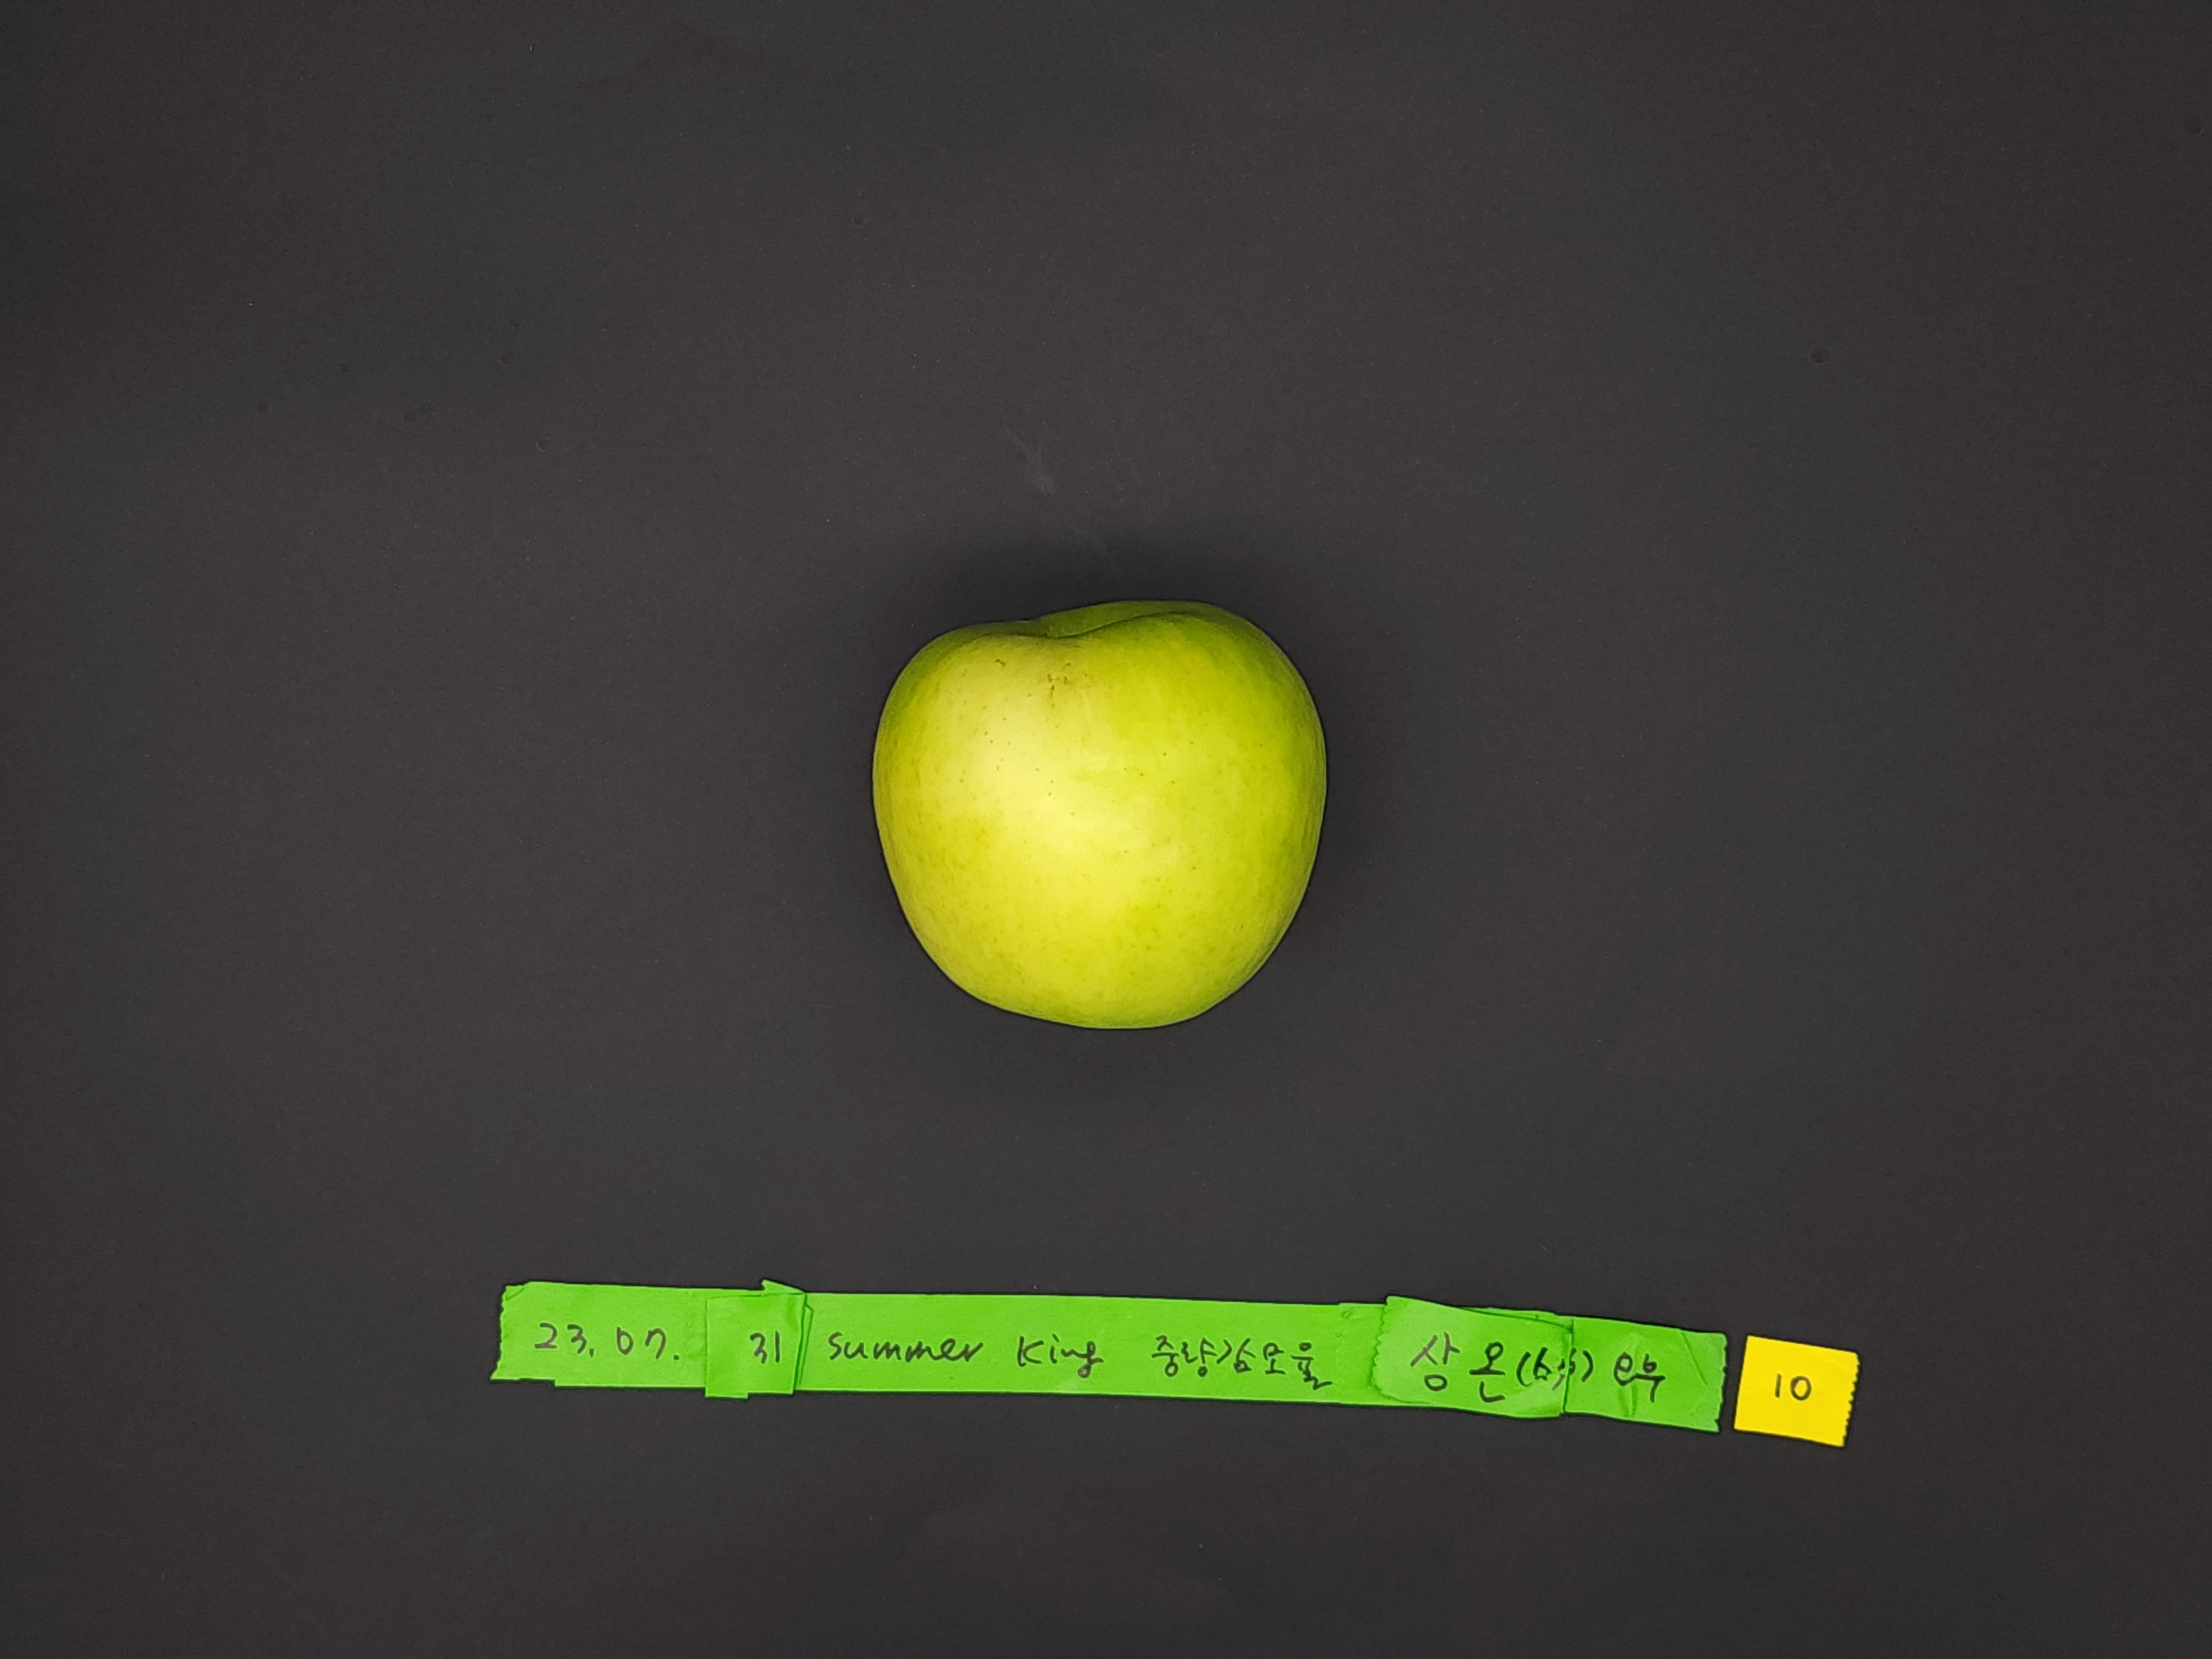 23. 07. 31 summer King 중량감모율 상온 10